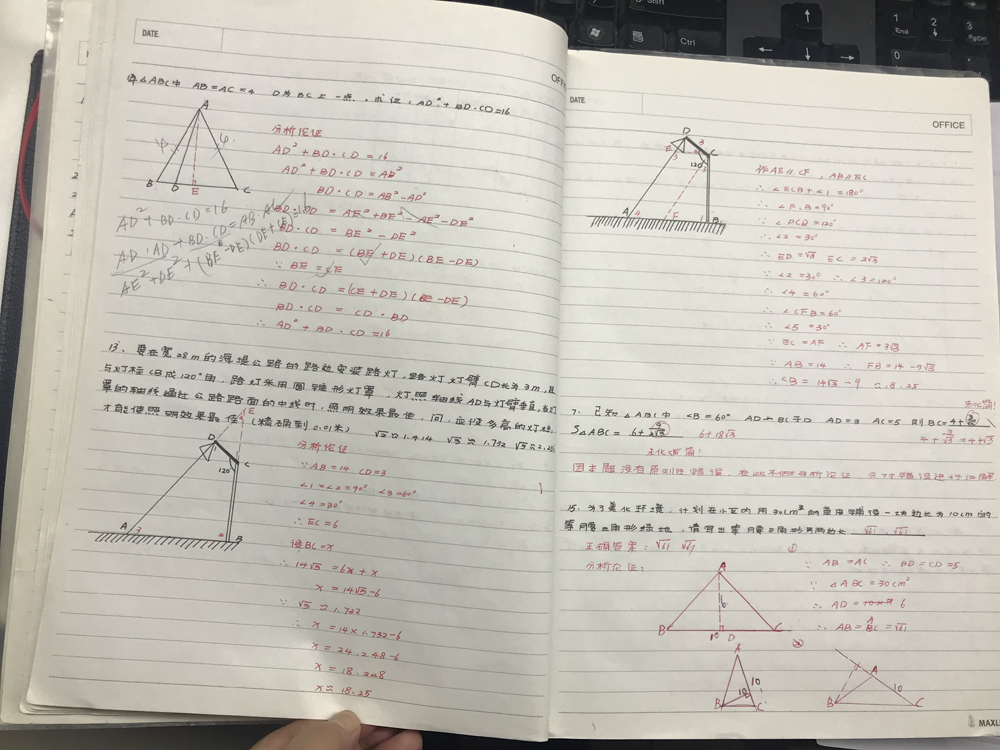 DATE
OFFICE
△ABC中 AB=AC=4 D为BC上一点,求证:AD²+BD·CD=16
A
B D E C
分析论证
AD²+BD·CD=16
AD²+BD·CD=AB²
BD·CD=AB²-AD²
BD·CD=AE²+BE²-AE²-DE²
BD·CD=BE²-DE²
BD·CD=(BE+DE)(BE-DE)
∵ BE=CE
∴ BD·CD=(CE+DE)(BE-DE)
BD·CD=CD·BD
∴ AD²+BD·CD=16
AD²+BD·CD=16
13、要在宽28m的海堤公路的路边安装路灯,路灯灯臂CD长为3m,且
与灯柱CB成120°角,路灯采用圆锥形灯罩,灯照轴线AD与灯臂垂直,当灯
罩的轴线通过公路路面的中线时,照明效果最佳,问:应设多高的灯柱
才能使照明效果最佳(精确到0.01米) √2≈1.414 √3≈1.732
E
D
C
120°
A 3
2 B
分析论证
∵AB=14 CD=3
∠1=∠2=90° ∠3=60°
∠4=30°
∴EC=6
设BC=x
∴ 14√3=6+x
x=14√3-6
∵ √3≈1.732
∴ x=14×1.732-6
x=24.248-6
x=18.248
x≈18.25
DATE
OFFICE
D
3
E
C
120°
A F B
作AE∥CF,AB∥EC
∴ ∠ECB+∠1=180°
∴ ∠F·B=90°
∵ ∠DCB=120°
∴ ∠2=30°
∴ ED=√3 EC=2√3
∵ ∠2=30° ∴ ∠3=120°
∴ ∠4=60°
∴ ∠CFB=60°
∴ ∠5=30°
∵ EC=AF ∴ AF=3√3
∵ AB=14 ∴ FB=14-9√3
∴ CB=14√3-9≈18.25
未化简!
7、已知△ABC中,∠B=60° AD⊥BC于D AD=3 AC=5 则BC=4+
S△ABC=6+ 6+18√3
4+ =4+√3
未化简!
因本题没有原则性错误,在此不做分析论证
15、为了美化环境,计划在小区内用30cm²的草皮铺设一块边长为10cm的
等腰三角形绿地,请写出等腰三角形另两边长 √61 √61
正确答案:√61 √61
①
分析论证:
∵ AB=AC ∴ BD=CD=5
∵ △ABC=30cm²
∴ AD= 6
∴ AB=AC=√61
A
6
B 10 D C
A
10
10
B C
A
10
B C
MAXL